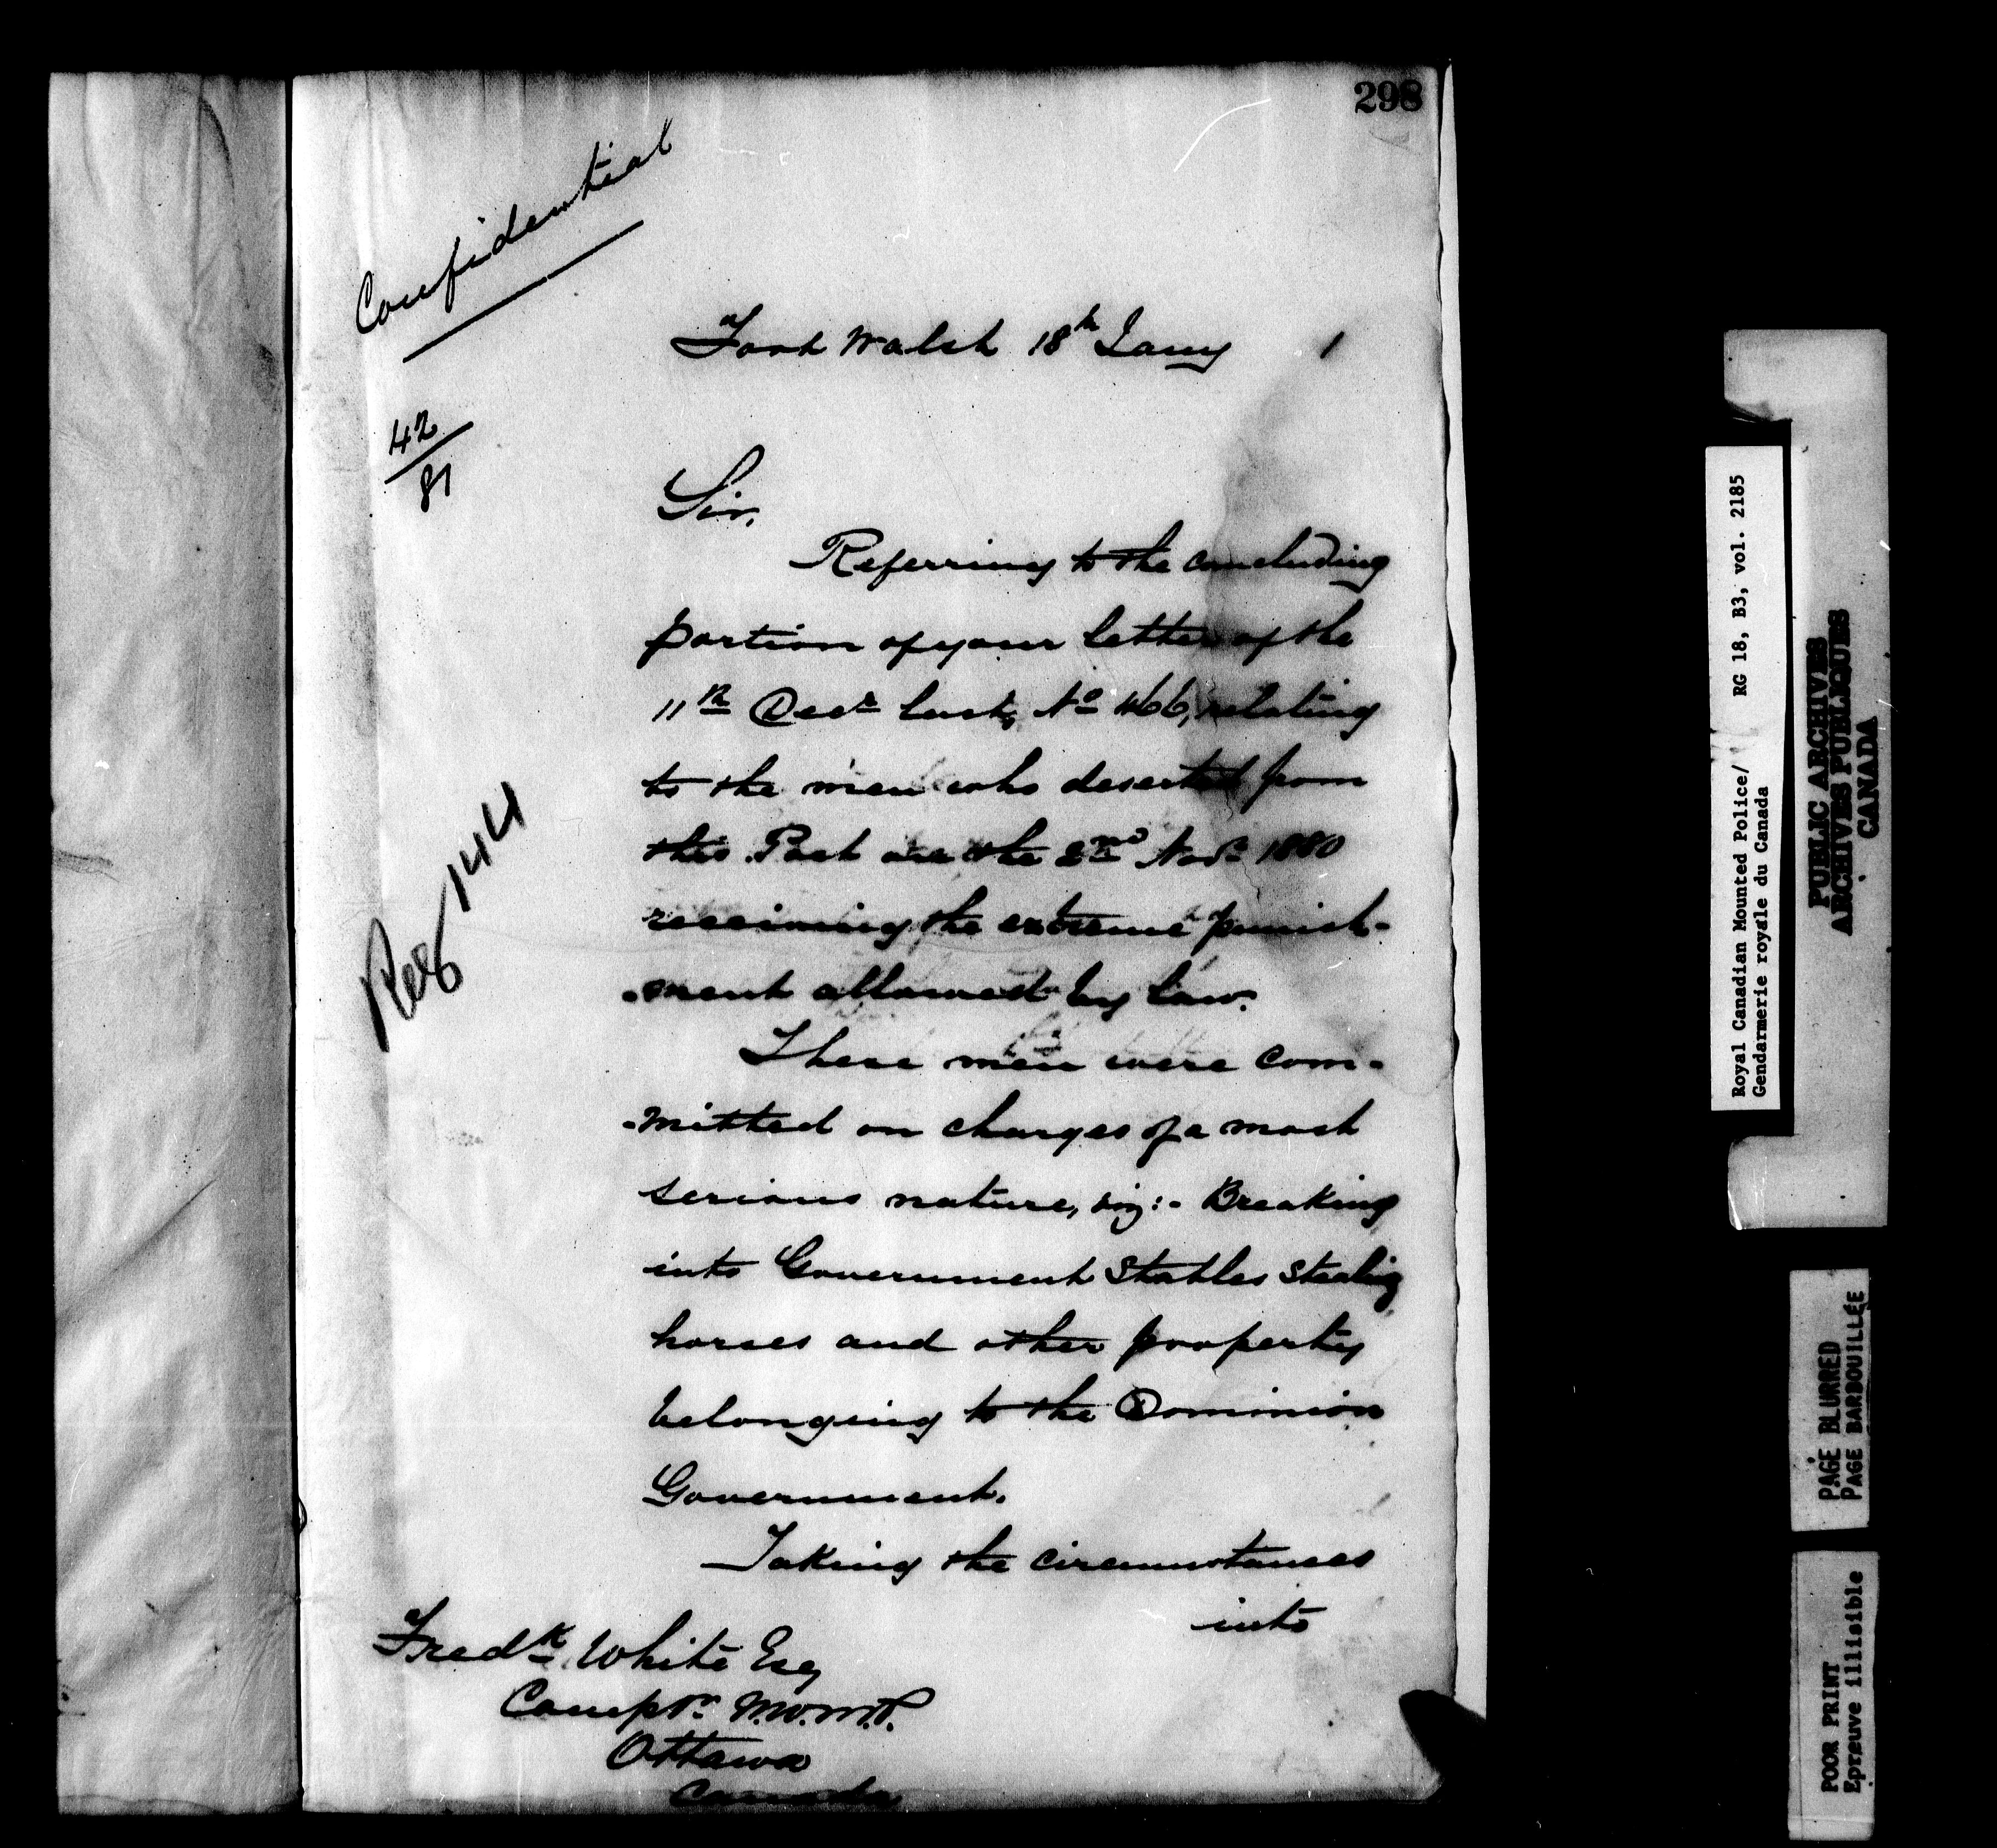 298
Confidential
Fort Walsh 18th Jany 1
42
81
Sir,
Referring to the concluding
portion of your letter of the
11th Decr last, No 466, relating
to the men who deserted from
this Post on the 2nd Novr 1880
receiving the extreme punish-
-ment allowed by law.
These men were com-
-mitted on charges of a most
serious nature, viz:- Breaking
into Government Stables stealing
horses and other property
belonging to the Dominion
Government.
Taking the circumstances
into
Fredk White Esq
Comptr N.W.M.P.
Ottawa
Canada
Reg 1441
Royal Canadian Mounted Police/ RG 18, B3, vol. 2185
Gendarmerie royale du Canada
PUBLIC ARCHIVES
ARCHIVES PUBLIQUES
CANADA
PAGE BLURRED
PAGE BARBOUILLÉE
POOR PRINT
Epreuve illisible